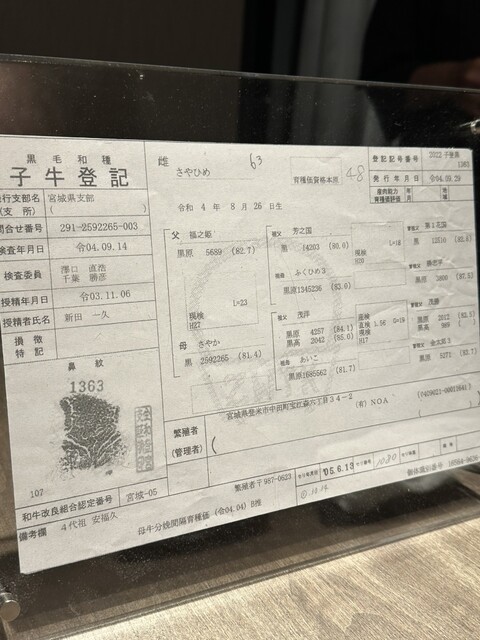 黒毛和種
子牛登記
雌
さやひめ
63
育種価資格本原
48
登記記号番号
2022 子登黒
1363
発行年月日
令04.09.29
産肉能力
育種価評価
年
月
発行支部名
(支 所)
宮城県支部
( )
令和 4 年 8 月 26 日生
問合せ番号
291-2592265-003
検査年月日
令04.09.14
検査委員
澤口 直浩
千葉 勝彦
授精年月日
令03.11.06
授精者氏名
新田 一久
損徴
特記
父 福之姫
黒原 5689 (82.7)
L=23
現検
H27
母 さやか
黒 2592265 (81.4)
祖父 芳之国
黒 14203 (80.0)
L=18
現検
祖母 ふくひめ3
黒原1345236 (83.6)
祖父 茂洋
黒原 4257 (84.1)
黒高 2042 (85.0)
現検
H17
祖母 おいこ
黒原1685562 (81.7)
第2花国
茂勝
黒原
黒高
金太郎3
黒原 5271
鼻紋
1363
107
繁殖者
(管理者)
宮城県登米市中田町宝江森六丁目34-2 (有)NOA
繁殖者〒987-0623
'05.6.13
1080
和牛改良組合認定番号
宮城-05
備考欄
4代祖 安福久
母牛分娩間隔育種価 (令04.04) B推
個体識別番号